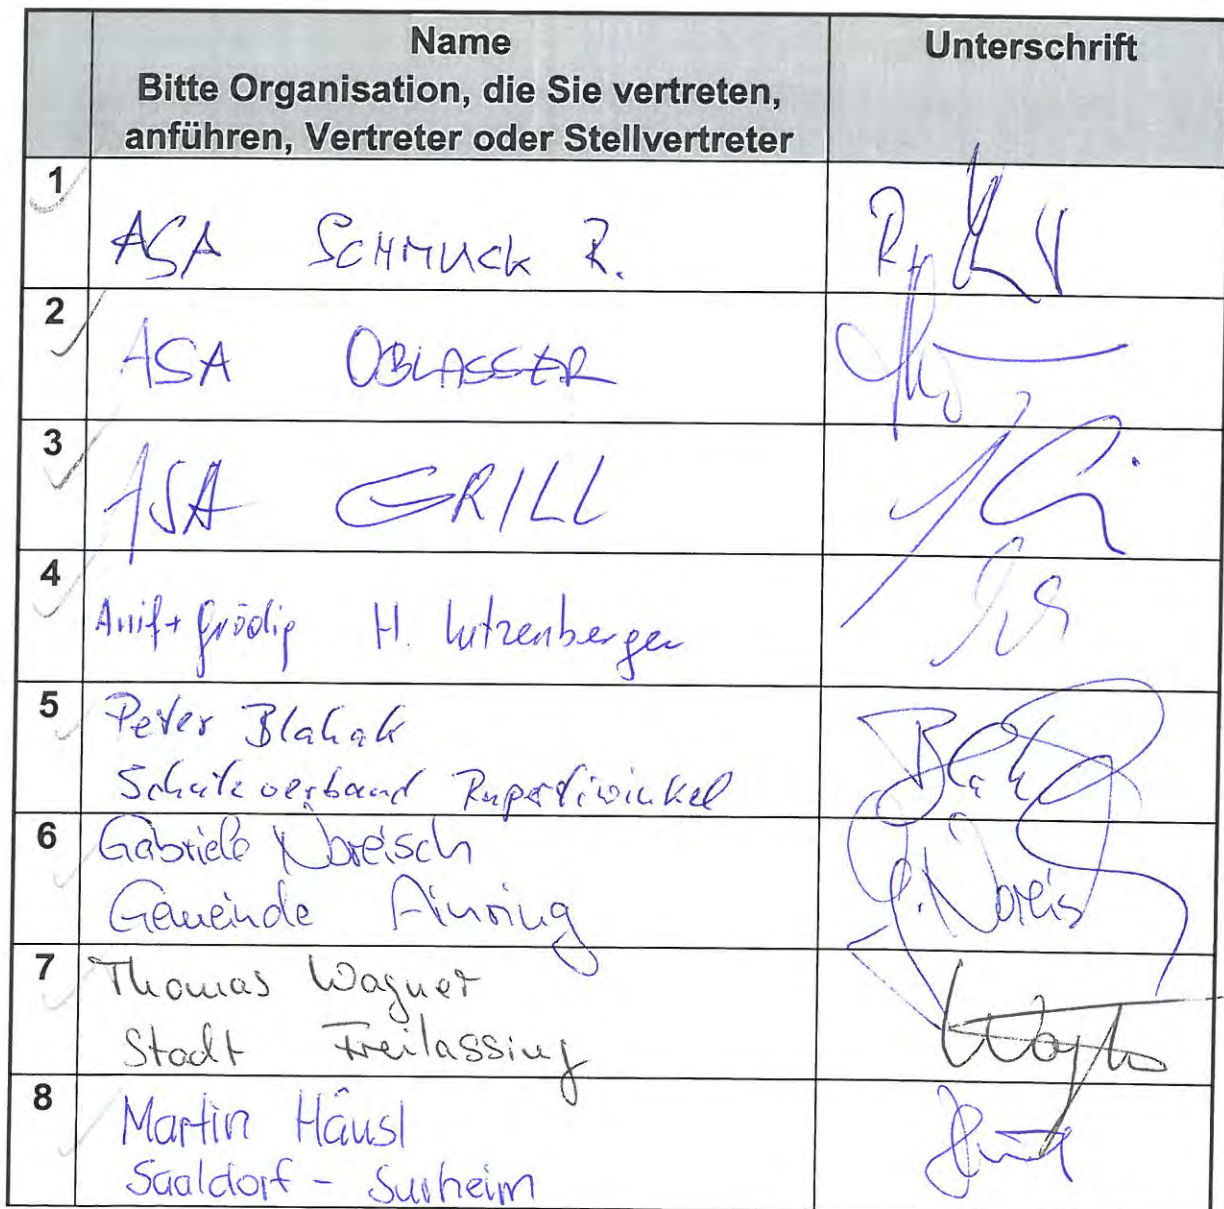 Name
Unterschrift
Bitte Organisation, die Sie vertreten,
anführen, Vertreter oder Stellvertreter
1
ASA SCHMUCK R.
2
ASA OBLASSER
3
ASA GRILL
4
Anif + Grödig H. Lutzenberger
5
Peter Blahak
Schutzverband Rupertiwinkel
6
Gabriele Noreisch
Gemeinde Ainring
G. Noreis
7
Thomas Wagner
Stadt Freilassing
8
Martin Häusl
Saaldorf - Surheim